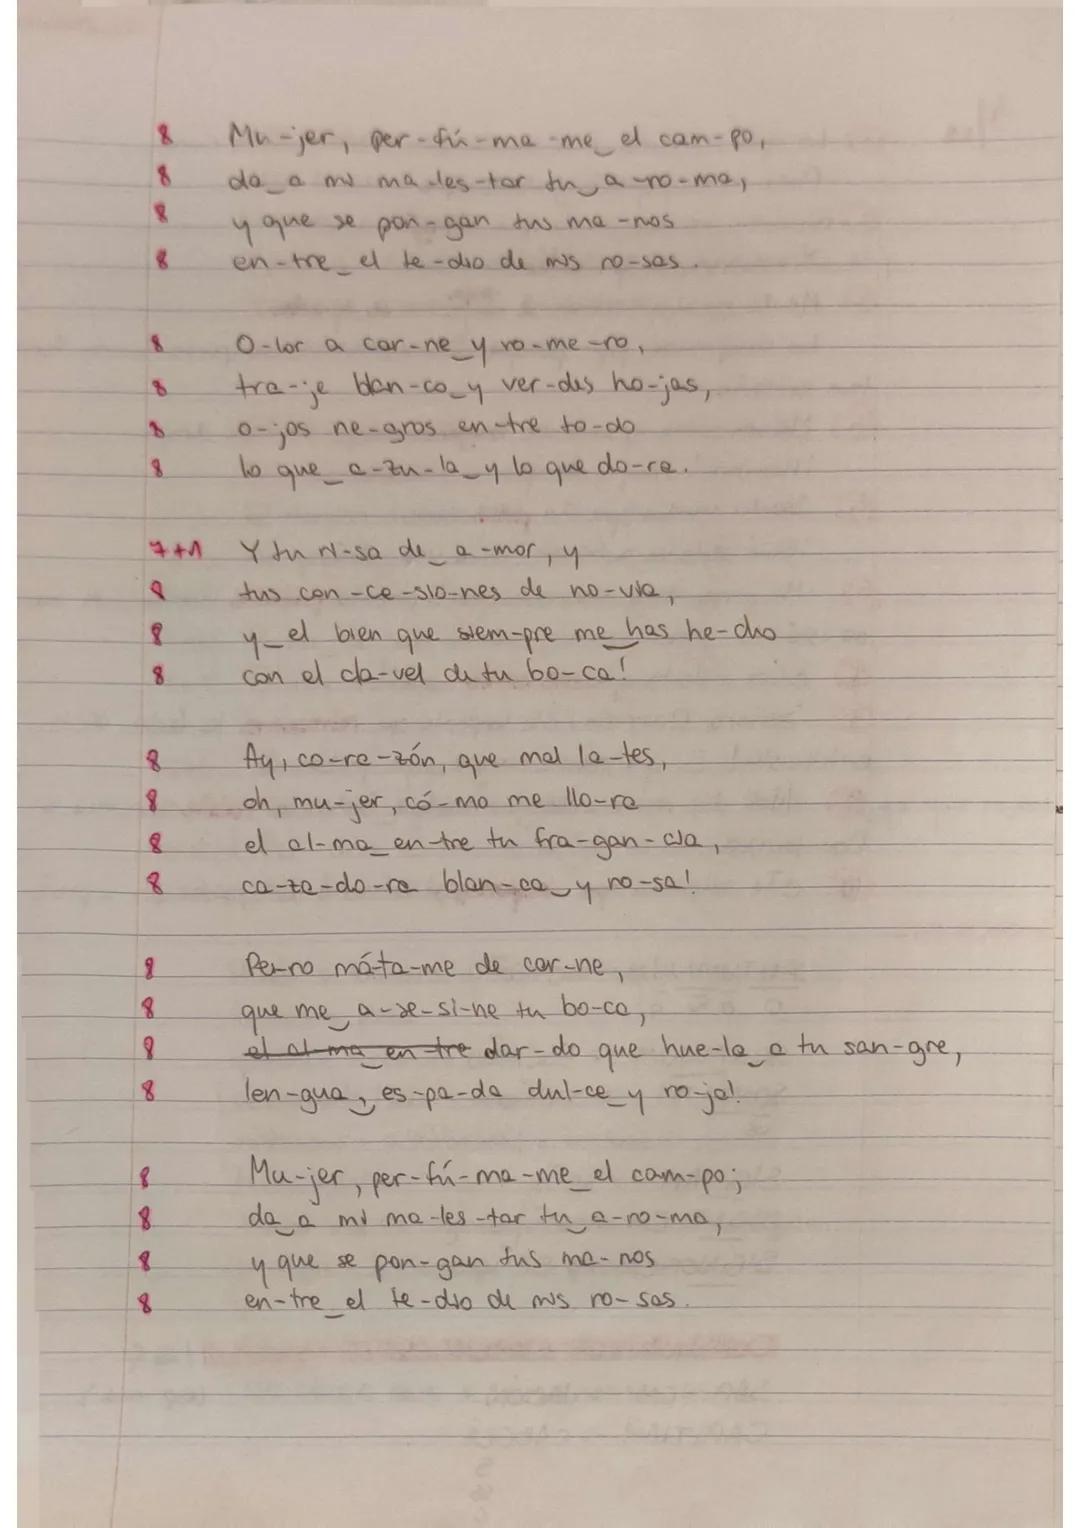 8 Mu-jer, per-fú-ma-me_el cam-po,
8 da_a mi ma-les-tar tu_a-ro-ma,
8 y que se pon-gan tus ma-nos
8 en-tre_el te-dio de mis ro-sas.
8 O-lor a car-ne_y ro-me-ro,
8 tra-je blan-co_y ver-des ho-jas,
8 o-jos ne-gros en-tre to-do
8 lo que_a-zu-la_y lo que do-ra.
7+1 Y tu ri-sa de_a-mor, y
8 tus con-ce-sio-nes de no-via,
8 y_el bien que siem-pre me_has he-cho
8 con el cla-vel de tu bo-ca!
8 Ay, co-ra-zón, que mal la-tes,
8 oh, mu-jer, có-mo me llo-ra
8 el al-ma_en-tre tu fra-gan-cia,
8 ca-za-do-ra blan-ca_y ro-sa!
8 Pe-ro má-ta-me de car-ne,
8 que me_a-se-si-ne tu bo-ca,
8 el al-ma en-tre dar-do que hue-la_a tu san-gre,
8 len-gua,_es-pa-da dul-ce_y ro-ja!
8 Mu-jer, per-fú-ma-me_el cam-po;
8 da_a mi ma-les-tar tu_a-ro-ma,
8 y que se pon-gan tus ma-nos
8 en-tre_el te-dio de mis ro-sas.